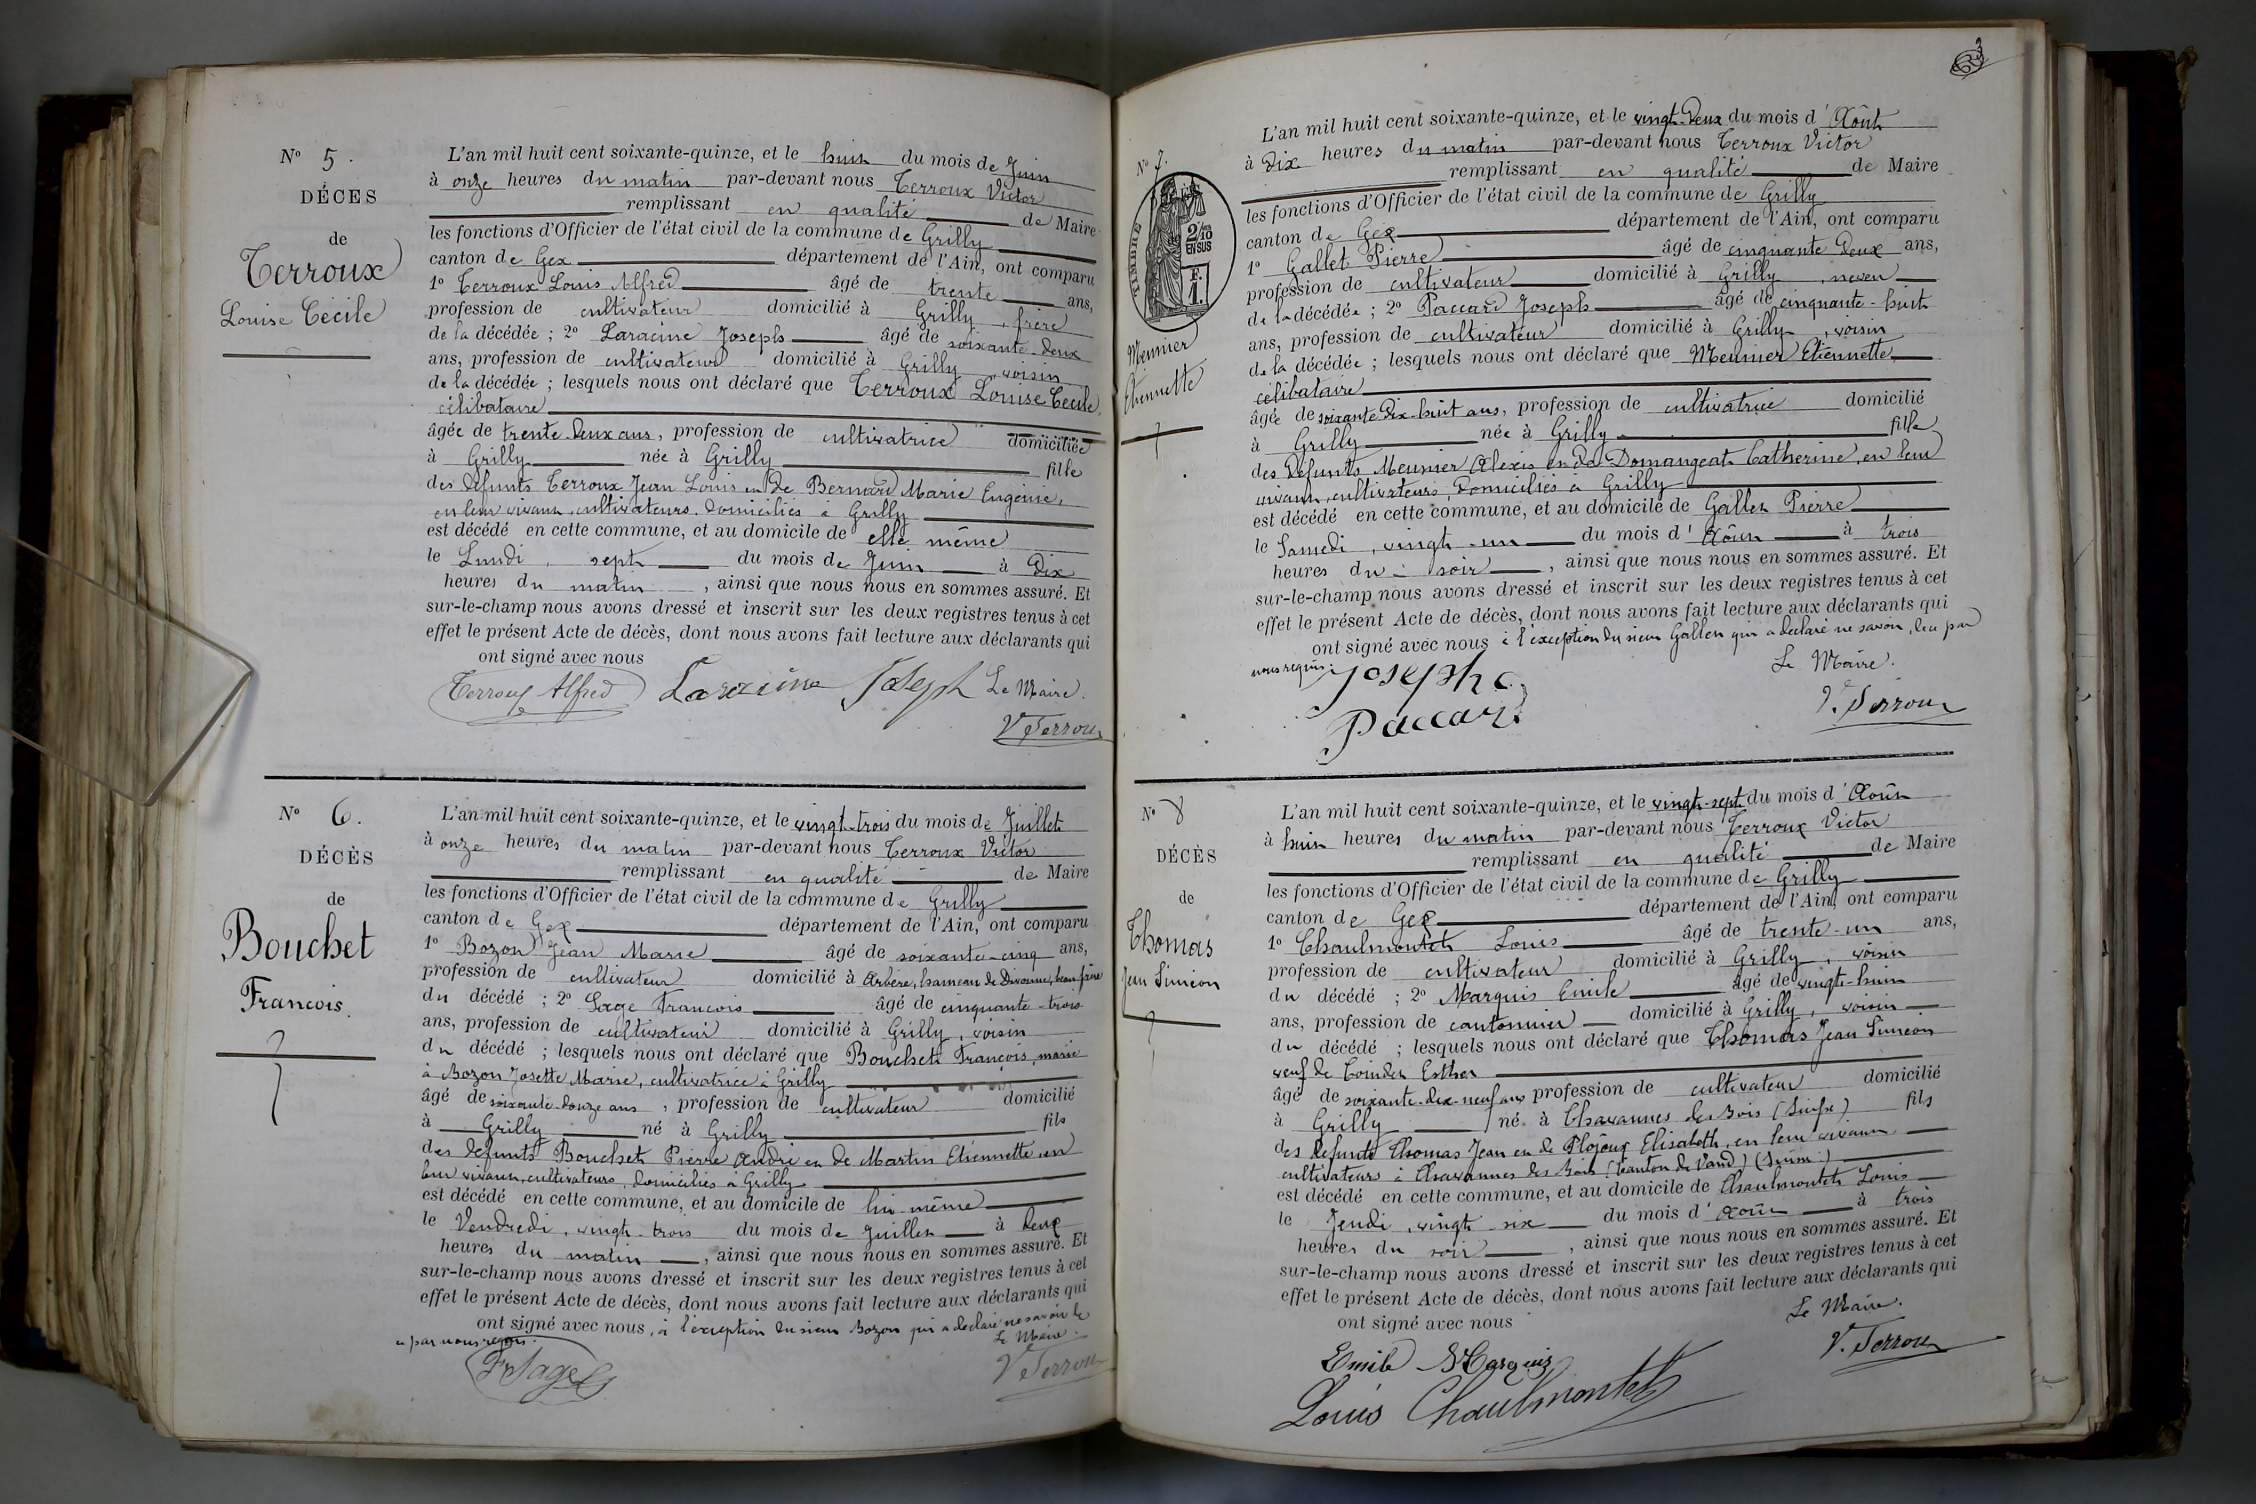 N° 5.
DÉCES
de
Terroux
Louise Cécile
L'an mil huit cent soixante-quinze, et le huit du mois de Juin
à onze heures du matin par-devant nous Terroux Victor
remplissant en qualité de Maire
les fonctions d'Officier de l'état civil de la commune de Grilly
canton de Gex département de l'Ain, ont comparu
1° Terroux Louis Alfred âgé de trente ans,
profession de cultivateur domicilié à Grilly, frère
de la décédée ; 2° Laracine Joseph âgé de soixante-deux
ans, profession de cultivateur domicilié à Grilly, voisin
de la décédée ; lesquels nous ont déclaré que Terroux Louise Cécile,
célibataire
âgée de trente-deux ans, profession de cultivatrice domiciliée
à Grilly née à Grilly fille
des défunts Terroux Jean Louis et de Bernard Marie Eugénie,
en leur vivant, cultivateurs, domiciliés à Grilly
est décédé en cette commune, et au domicile de elle même
le Lundi, sept du mois de Juin à Dix
heures du matin, ainsi que nous nous en sommes assuré. Et
sur-le-champ nous avons dressé et inscrit sur les deux registres tenus à cet
effet le présent Acte de décès, dont nous avons fait lecture aux déclarants qui
ont signé avec nous
Terroux Alfred Laracine Joseph Le Maire.
V. Terroux
N° 6.
DÉCÈS
de
Bouchet
Francois.
L'an mil huit cent soixante-quinze, et le vingt-trois du mois de Juillet
à onze heures du matin par-devant nous Terroux Victor
remplissant en qualité de Maire
les fonctions d'Officier de l'état civil de la commune de Grilly
canton de Gex département de l'Ain, ont comparu
1° Bozon Jean Marie âgé de soixante-cinq ans,
profession de cultivateur domicilié à Arbère, hameau de Divonne, beau frère
du décédé ; 2° Sage Francois âgé de cinquante-trois
ans, profession de cultivateur domicilié à Grilly, voisin
du décédé ; lesquels nous ont déclaré que Bouchet François, marié
à Bozon Josette Marie, cultivatrice à Grilly
âgé de soixante-douze ans, profession de cultivateur domicilié
à Grilly né à Grilly fils
des défunts Bouchet Pierre André et de Martin Etiennette, en
leur vivant, cultivateurs, domiciliés à Grilly
est décédé en cette commune, et au domicile de lui-même
le Vendredi, vingt-trois du mois de Juillet à deux
heures du matin, ainsi que nous nous en sommes assuré. Et
sur-le-champ nous avons dressé et inscrit sur les deux registres tenus à cet
effet le présent Acte de décès, dont nous avons fait lecture aux déclarants qui
ont signé avec nous, à l'exception du sieur Bozon qui a déclaré ne savoir le
par nous requis. Le Maire.
F. Sage V. Terroux
3
N° 7.
TIMBRE
2/10
EN SUS
F.
1.
Meunier
Etiennette
L'an mil huit cent soixante-quinze, et le vingt-deux du mois d'Août
à dix heures du matin par-devant nous Terroux Victor
remplissant en qualité de Maire
les fonctions d'Officier de l'état civil de la commune de Grilly
canton de Gex département de l'Ain, ont comparu
1° Gallet Pierre âgé de cinquante deux ans,
profession de cultivateur domicilié à Grilly, neveu
de la décédée ; 2° Paccard Joseph âgé de cinquante-huit
ans, profession de cultivateur domicilié à Grilly, voisin
de la décédée ; lesquels nous ont déclaré que Meunier Etiennette,
célibataire
âgée de soixante dix-huit ans, profession de cultivatrice domicilié
à Grilly née à Grilly fille
des défunts Meunier Alexis et de Domangeat Catherine, en leur
vivant, cultivateurs, domiciliés à Grilly
est décédé en cette commune, et au domicile de Gallet Pierre
le Samedi, vingt-un du mois d'Août à trois
heures du soir, ainsi que nous nous en sommes assuré. Et
sur-le-champ nous avons dressé et inscrit sur les deux registres tenus à cet
effet le présent Acte de décès, dont nous avons fait lecture aux déclarants qui
ont signé avec nous à l'exception du sieur Gallet qui a déclaré ne savoir, de ce par
nous requis. Le Maire.
Joseph
Paccard V. Terroux
N° 8
DÉCÈS
de
Thomas
Jean Siméon
L'an mil huit cent soixante-quinze, et le vingt-sept du mois d'Août
à huit heures du matin par-devant nous Terroux Victor
remplissant en qualité de Maire
les fonctions d'Officier de l'état civil de la commune de Grilly
canton de Gex département de l'Ain, ont comparu
1° Chaulmontet Louis âgé de trente-un ans,
profession de cultivateur domicilié à Grilly, voisin
du décédé ; 2° Marquis Emile âgé de vingt-huit
ans, profession de cantonnier domicilié à Grilly, voisin
du décédé ; lesquels nous ont déclaré que Thomas Jean Siméon
veuf de Cointet Esther
âgé de soixante-dix-neuf ans profession de cultivateur domicilié
à Grilly né à Chavannes des Bois (Suisse) fils
des défunts Thomas Jean et de Plojoux Elisabeth, en leur vivant
cultivateurs à Chavannes des Bois (Canton de Vaud) (Suisse)
est décédé en cette commune, et au domicile de Chaulmontet Louis
le Jeudi, vingt six du mois d'Août à trois
heures du soir, ainsi que nous nous en sommes assuré. Et
sur-le-champ nous avons dressé et inscrit sur les deux registres tenus à cet
effet le présent Acte de décès, dont nous avons fait lecture aux déclarants qui
ont signé avec nous Le Maire.
Emile Marquis V. Terroux
Louis Chaulmontet